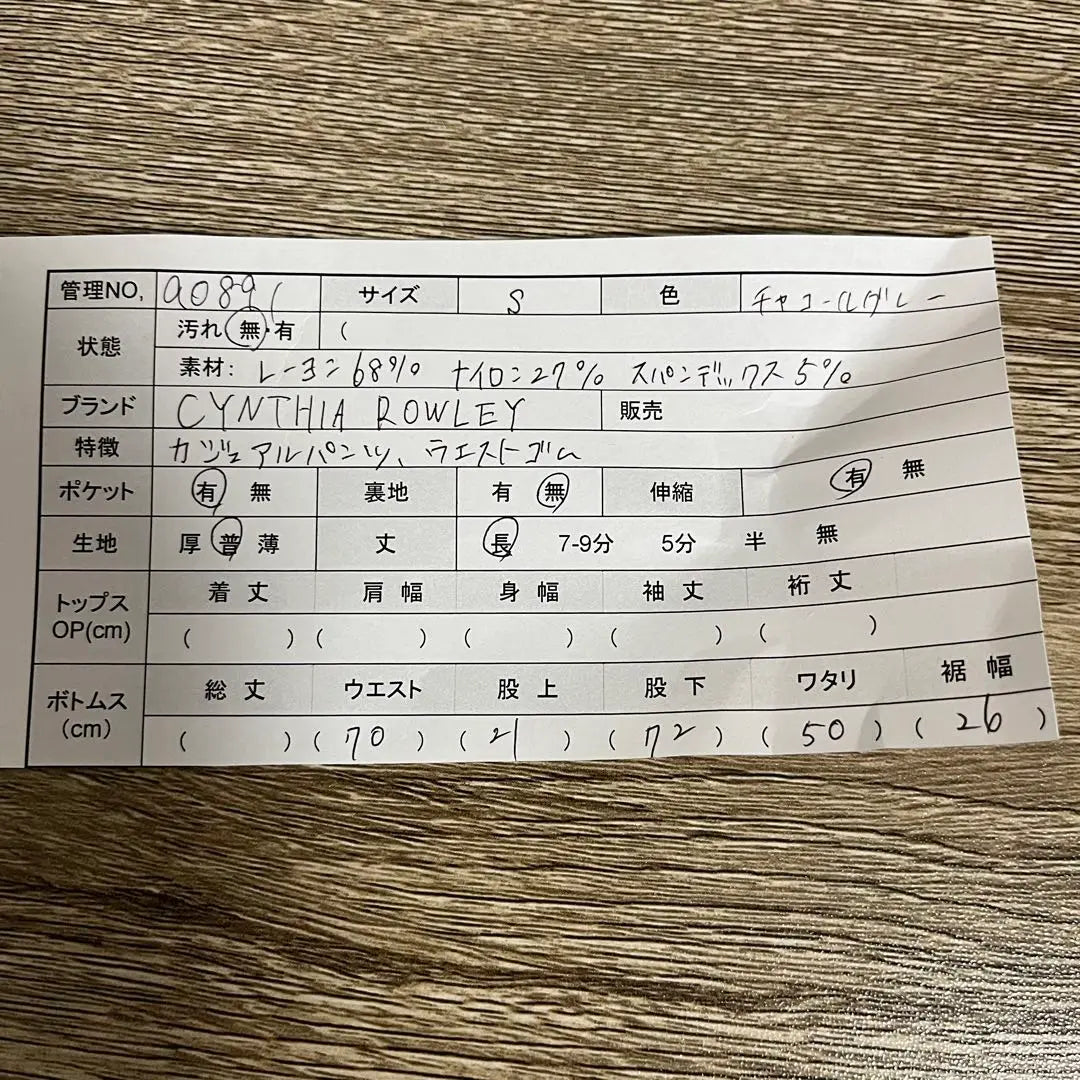 管理NO, a0891 サイズ S 色 チャコールグレー
状態 汚れ 無・有 (
素材: レーヨン68% ナイロン27% スパンデックス5%
ブランド CYNTHIA ROWLEY 販売
特徴 カジュアルパンツ、ウエストゴム
ポケット 有 無 裏地 有 無 伸縮 有 無
生地 厚 普 薄 丈 長 7-9分 5分 半 無
トップス OP(cm) 着丈 肩幅 身幅 袖丈 裄丈
( ) ( ) ( ) ( ) ( )
ボトムス (cm) 総丈 ウエスト 股上 股下 ワタリ 裾幅
( ) ( 70 ) ( 21 ) ( 72 ) ( 50 ) ( 26 )